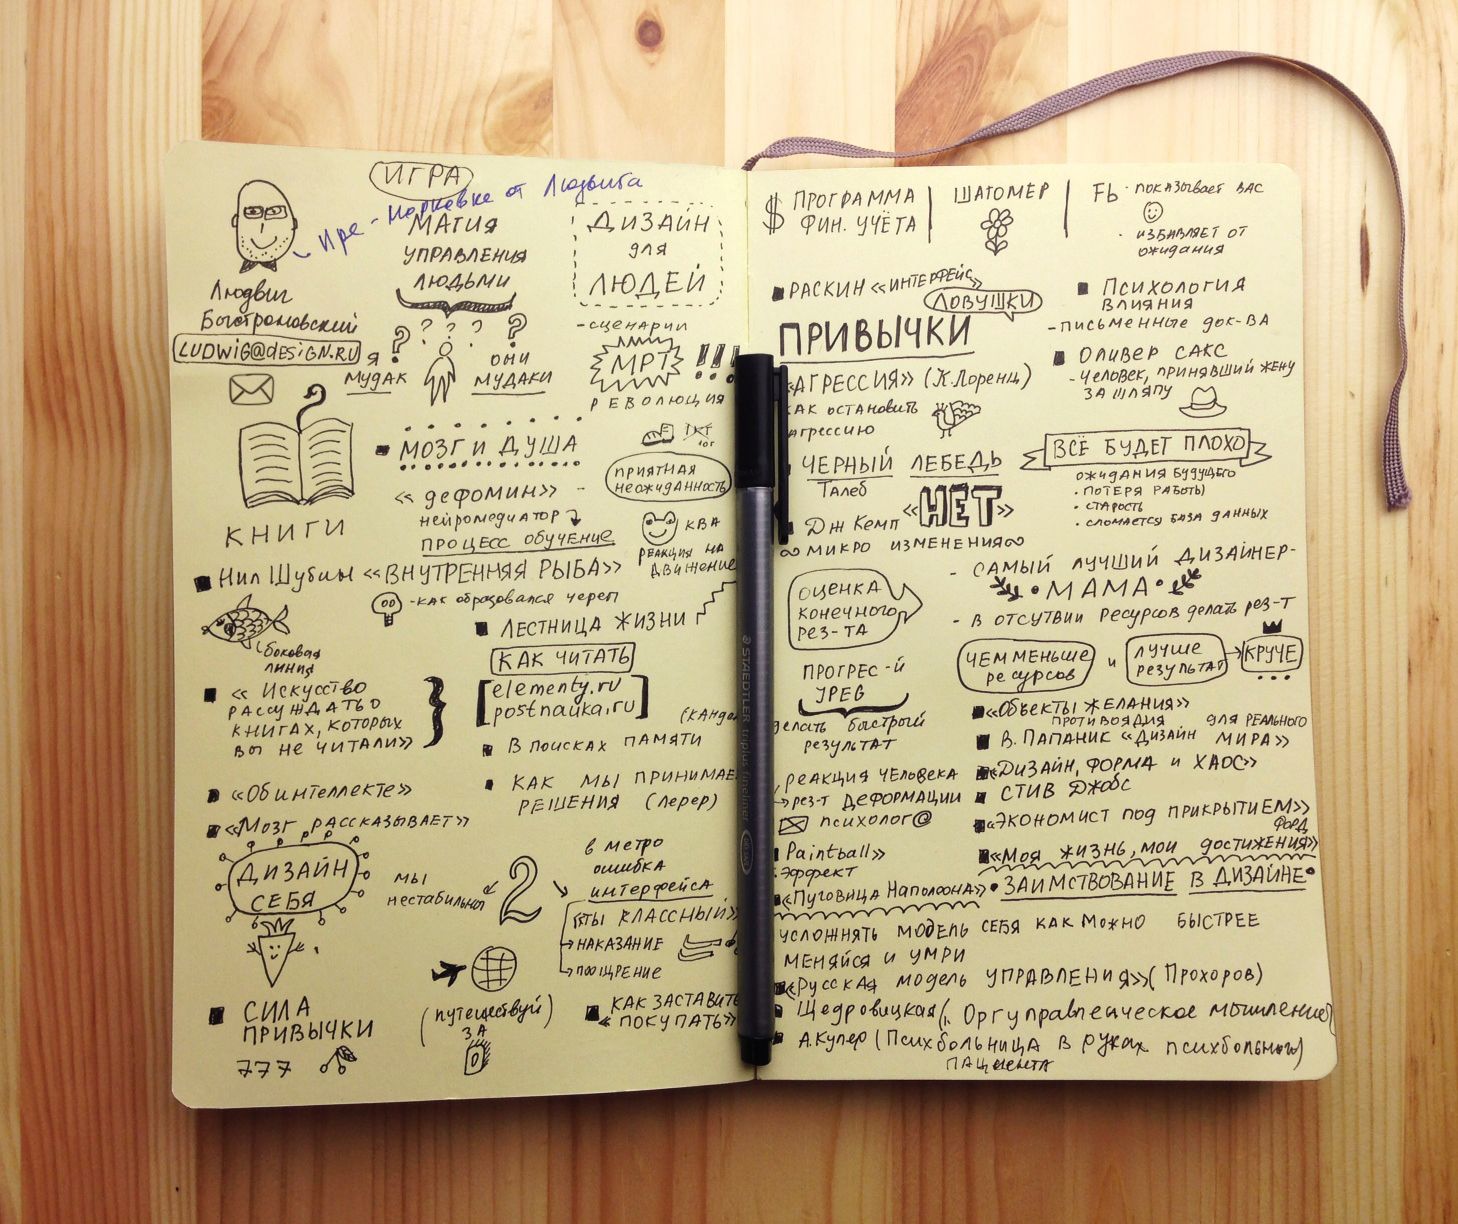 ИГРА
Людвига
МАГИЯ
УПРАВЛЕНИЯ
ЛЮДЬМИ
ДИЗАЙН
для
ЛЮДЕЙ
Людвиг
Быстроновский
LUDWiG@dESiGN.RU
? ? ? ? ?
Я
МУДАК
ОНИ
МУДАКИ
-СЦЕНАРИИ
МРТ !!!
РЕВОЛЮЦИЯ
КНИГИ
МОЗГ И ДУША
«дефомин» -
нейромедиатор
ПРОЦЕСС ОБУЧЕНИЕ
ПРИЯТНАЯ
НЕОЖИДАННОСТЬ
КВА
РЕАКЦИЯ НА
ДВИЖЕНИЕ
Нил Шубин «ВНУТРЕННЯЯ РЫБА»
-как образовался череп
боковая
линия
ЛЕСТНИЦА ЖИЗНИ
КАК ЧИТАТЬ
elementy.ru
postnauka.ru
«Искусство
рассуждать о
книгах, которых
вы не читали»
В ПОИСКАХ ПАМЯТИ
(канде
«Об интеллекте»
КАК МЫ ПРИНИМАЕ
РЕШЕНИЯ (Лерер)
«Мозг рассказывает»
ДИЗАЙН
СЕБЯ
мы
нестабильны
2
в метро
ошибка
интерфейса
«ТЫ КЛАССНЫЙ»
НАКАЗАНИЕ
ПООЩРЕНИЕ
СИЛА
ПРИВЫЧКИ
777
(путешествуй)
ЗА
КАК ЗАСТАВИТЬ
«ПОКУПАТЬ»
$ ПРОГРАММА
ФИН. УЧЁТА
ШАГОМЕР
Fb · показывает вас
· избавляет от
ожидания
РАСКИН «ИНТЕРФЕЙС»
ЛОВУШКИ
ПРИВЫЧКИ
ПСИХОЛОГИЯ
ВЛИЯНИЯ
-письменные док-ва
«АГРЕССИЯ» (К.Лоренц)
как остановить
агрессию
ОЛИВЕР САКС
-Человек, принявший жену
за шляпу
ЧЕРНЫЙ ЛЕБЕДЬ
Талеб
Дж Кемп «НЕТ»
∞ МИКРО ИЗМЕНЕНИЯ ∞
ВСЁ БУДЕТ ПЛОХО
ОЖИДАНИЯ БУДУЩЕГО
· ПОТЕРЯ РАБОТЫ
· СТАРОСТЬ
· СЛОМАЕТСЯ БАЗА ДАННЫХ
ОЦЕНКА
КОНЕЧНОГО
РЕЗ-ТА
- САМЫЙ ЛУЧШИЙ ДИЗАЙНЕР-
·МАМА·
- В ОТСУТВИИ РЕСУРСОВ делать рез-т
ЧЕМ МЕНЬШЕ
РЕСУРСОВ
и
ЛУЧШЕ
РЕЗУЛЬТАТ
КРУЧЕ
ПРОГРЕС-Й
JPEG
делать быстрый
результат
«Объекты желания»
противоядия
В. ПАПАНИК «Дизайн для реального
МИРА»
«ДИЗАЙН, ФОРМА и ХАОС»
СТИВ Джобс
«ЭКОНОМИСТ под ПРИКРЫТИЕМ»
ФОРД
«Моя жизнь, мои достижения»
реакция человека
рез-т ДЕФОРМАЦИИ
психолог@
Paintball»
Эффект
«Пуговица Наполеона»
·ЗАИМСТВОВАНИЕ В ДИЗАЙНЕ·
УСЛОЖНЯТЬ МОДЕЛЬ СЕБЯ КАК МОЖНО БЫСТРЕЕ
МЕНЯЙСЯ И УМРИ
«Русская модель УПРАВЛЕНИЯ» (Прохоров)
Щедровицкая (
А.Купер (Психбольница в руках психбольного)
ПАЦИЕНТА
STAEDTLER triplus fineliner